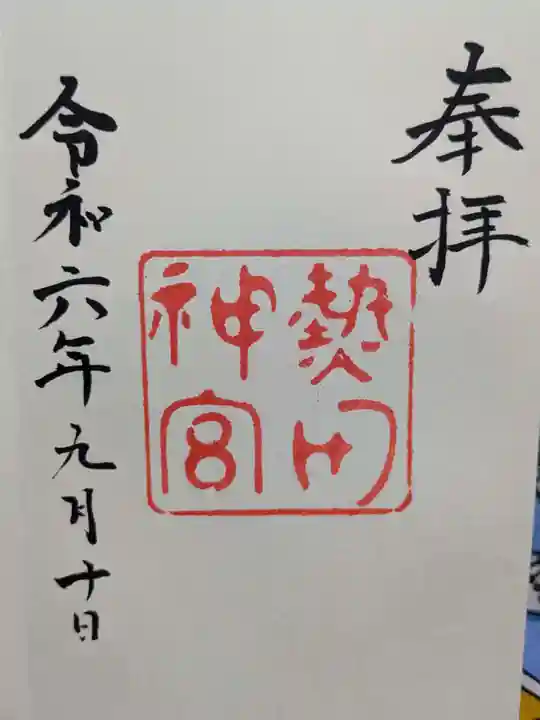 奉拝
熱田
神宮
令和六年九月十日